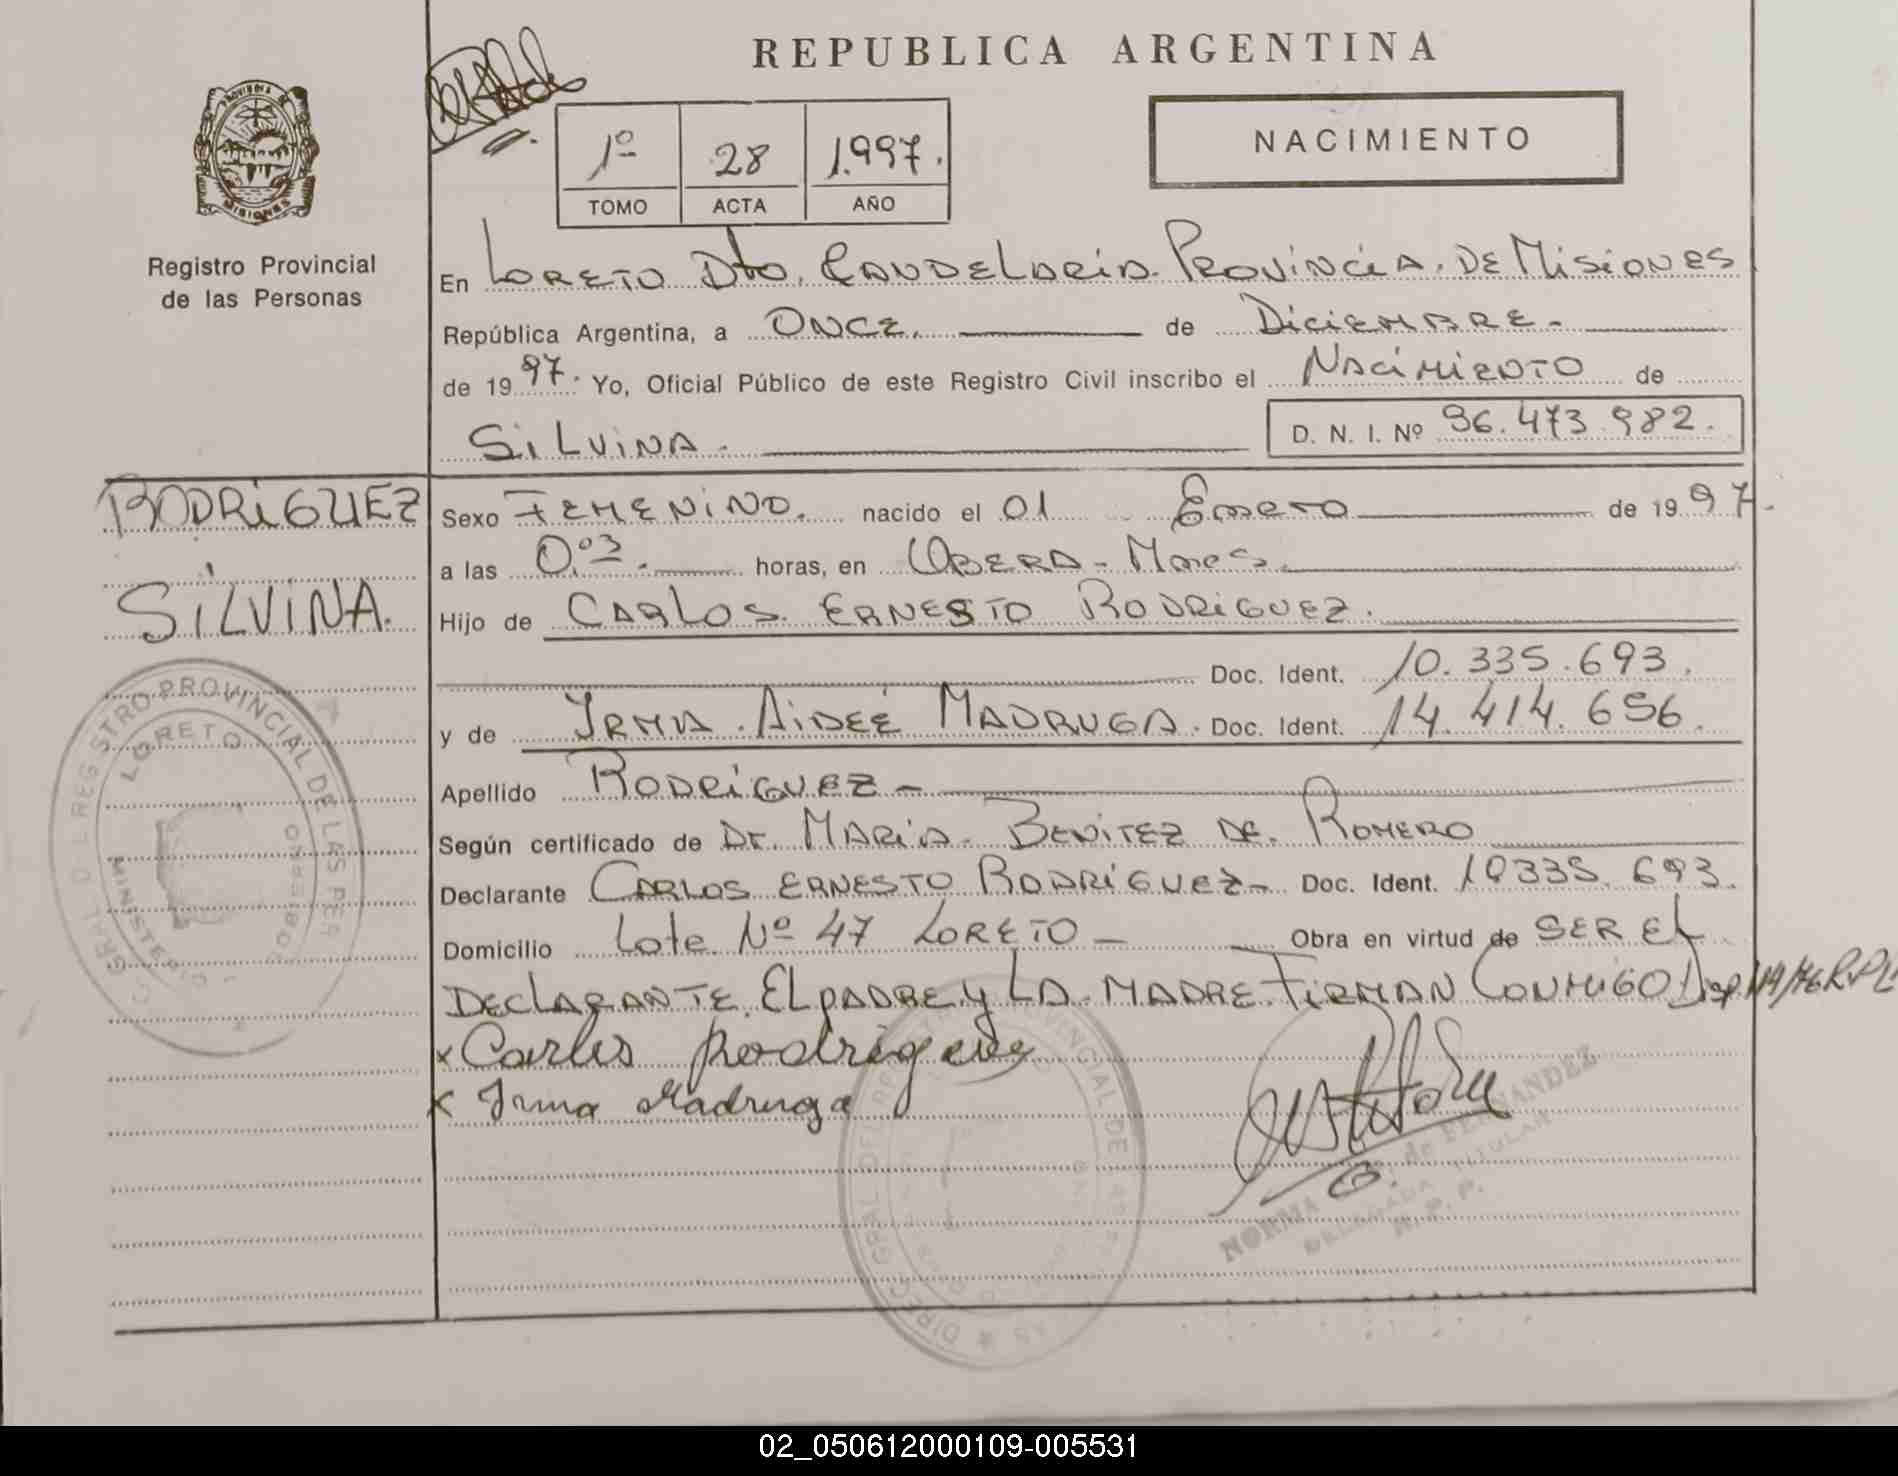 REPUBLICA ARGENTINA
PROVINCIA DE MISIONES
1º 28 1.997.
TOMO ACTA AÑO
NACIMIENTO
Registro Provincial
de las Personas
En LORETO Dto. CANDELARIA. PROVINCIA. DE MISIONES
República Argentina, a ONCE. de DICIEMBRE.-
de 19 97. Yo, Oficial Público de este Registro Civil inscribo el NACIMIENTO de
SILVINA. D. N. I. Nº 96.473.982.
RODRIGUEZ
SILVINA.
Sexo FEMENINO. nacido el 01 Enero de 19 97.
a las 0,03. horas, en OBERA - Mnes.
Hijo de CARLOS ERNESTO RODRIGUEZ.
Doc. Ident. 10.335.693.
y de IRMA. AIDEÉ MADRUGA. Doc. Ident. 14.414.656.
Apellido RODRÍGUEZ -
Según certificado de Dr. MARIA. BENITEZ DE. ROMERO
Declarante CARLOS ERNESTO RODRÍGUEZ- Doc. Ident. 10335.693.
Domicilio Lote Nº 47 LORETO - Obra en virtud de SER EL
DECLARANTE. EL PADRE Y LA MADRE FIRMAN CONMIGO
x Carlos Rodriguez
x Irma Madruga
REGISTRO PROVINCIAL DE LAS PER
LORETO
MINISTERIO
NORMA de FERNANDEZ
DELEGADA TITULAR
R. P. P.
02_050612000109-005531